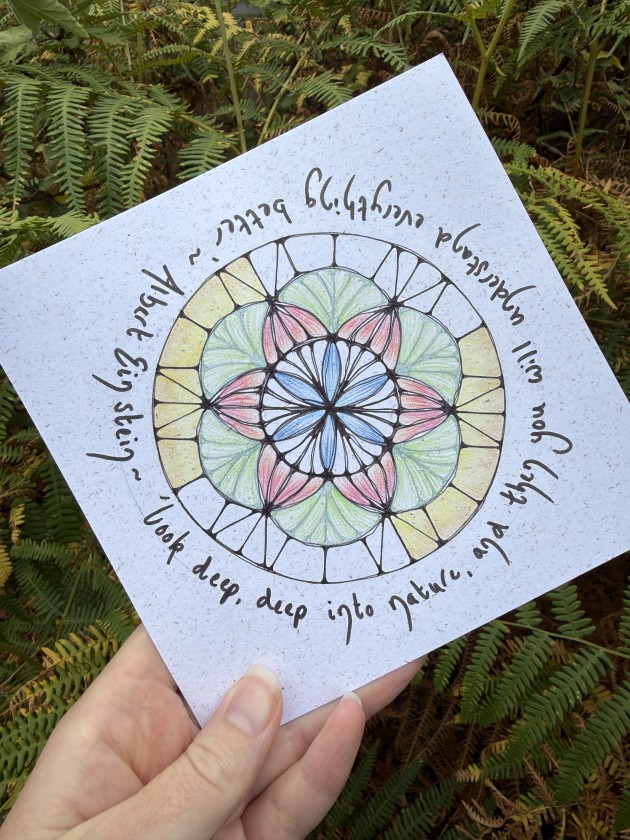 'Look deep, deep into nature, and then you will understand everything better' ~ Albert Einstein ~